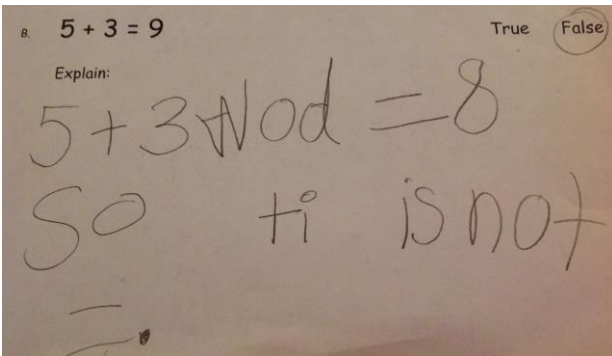 B. 5 + 3 = 9 True False
Explain:
5+3 Wod = 8
So ti is not
=.